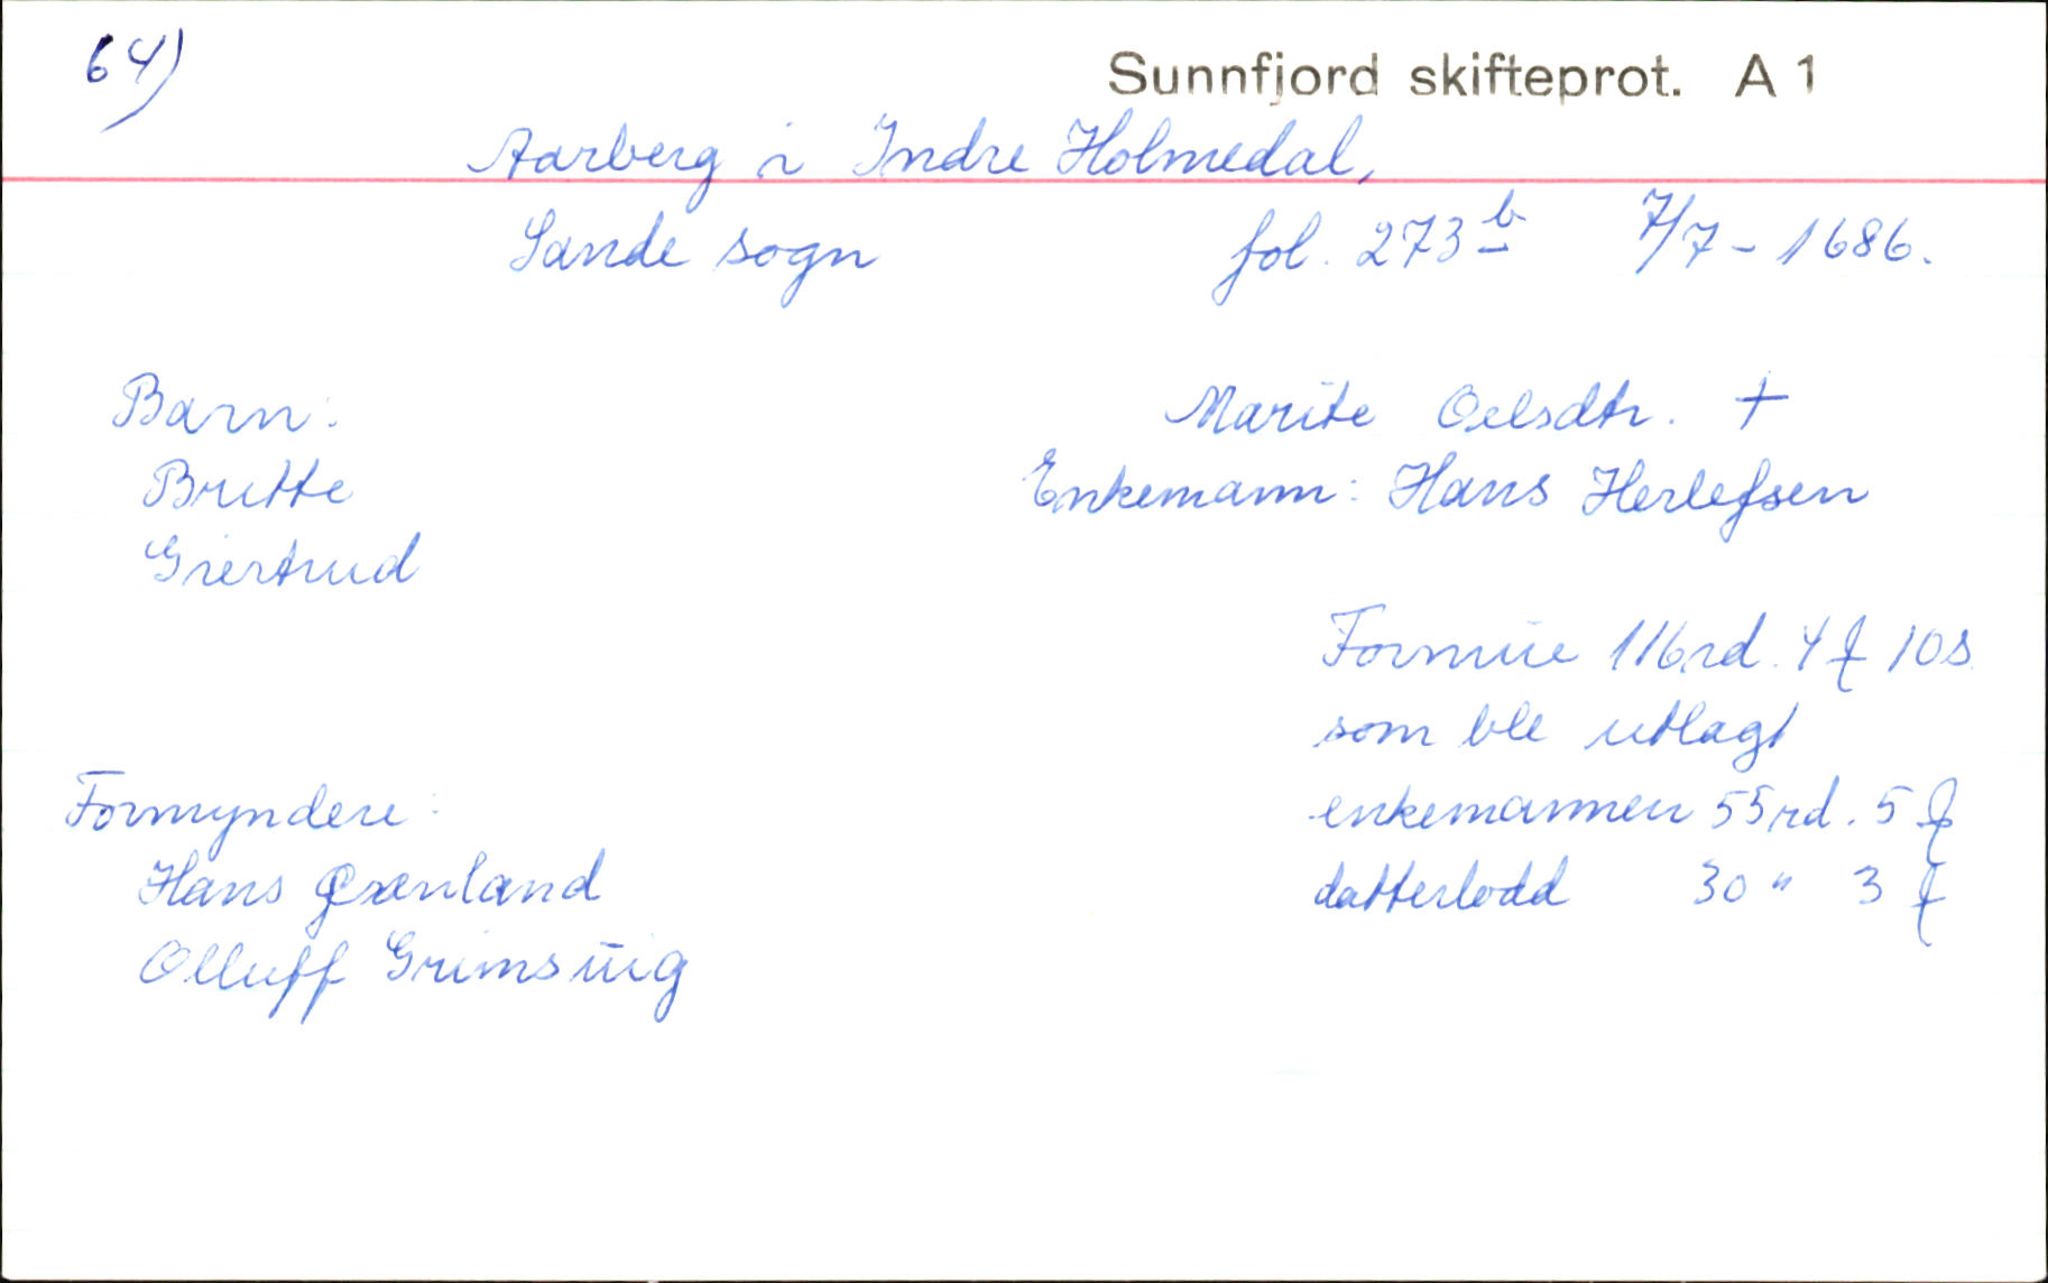 64)
Sunnfjord skifteprot. A 1
Aarberg i Indre Holmedal,
Sande sogn fol. 273 b 7/7 - 1686.
Barn:
Britte
Giertrud
Marite Oelsdtr. +
Enkemann: Hans Herlefsen
Formue 116 rd. 4 ƒ 10 s.
som ble utlagt
enkemannen 55 rd. 5 ƒ
datterlodd 30 " 3 ƒ
Formyndere:
Hans Qvænland
Olluff Grimsuig